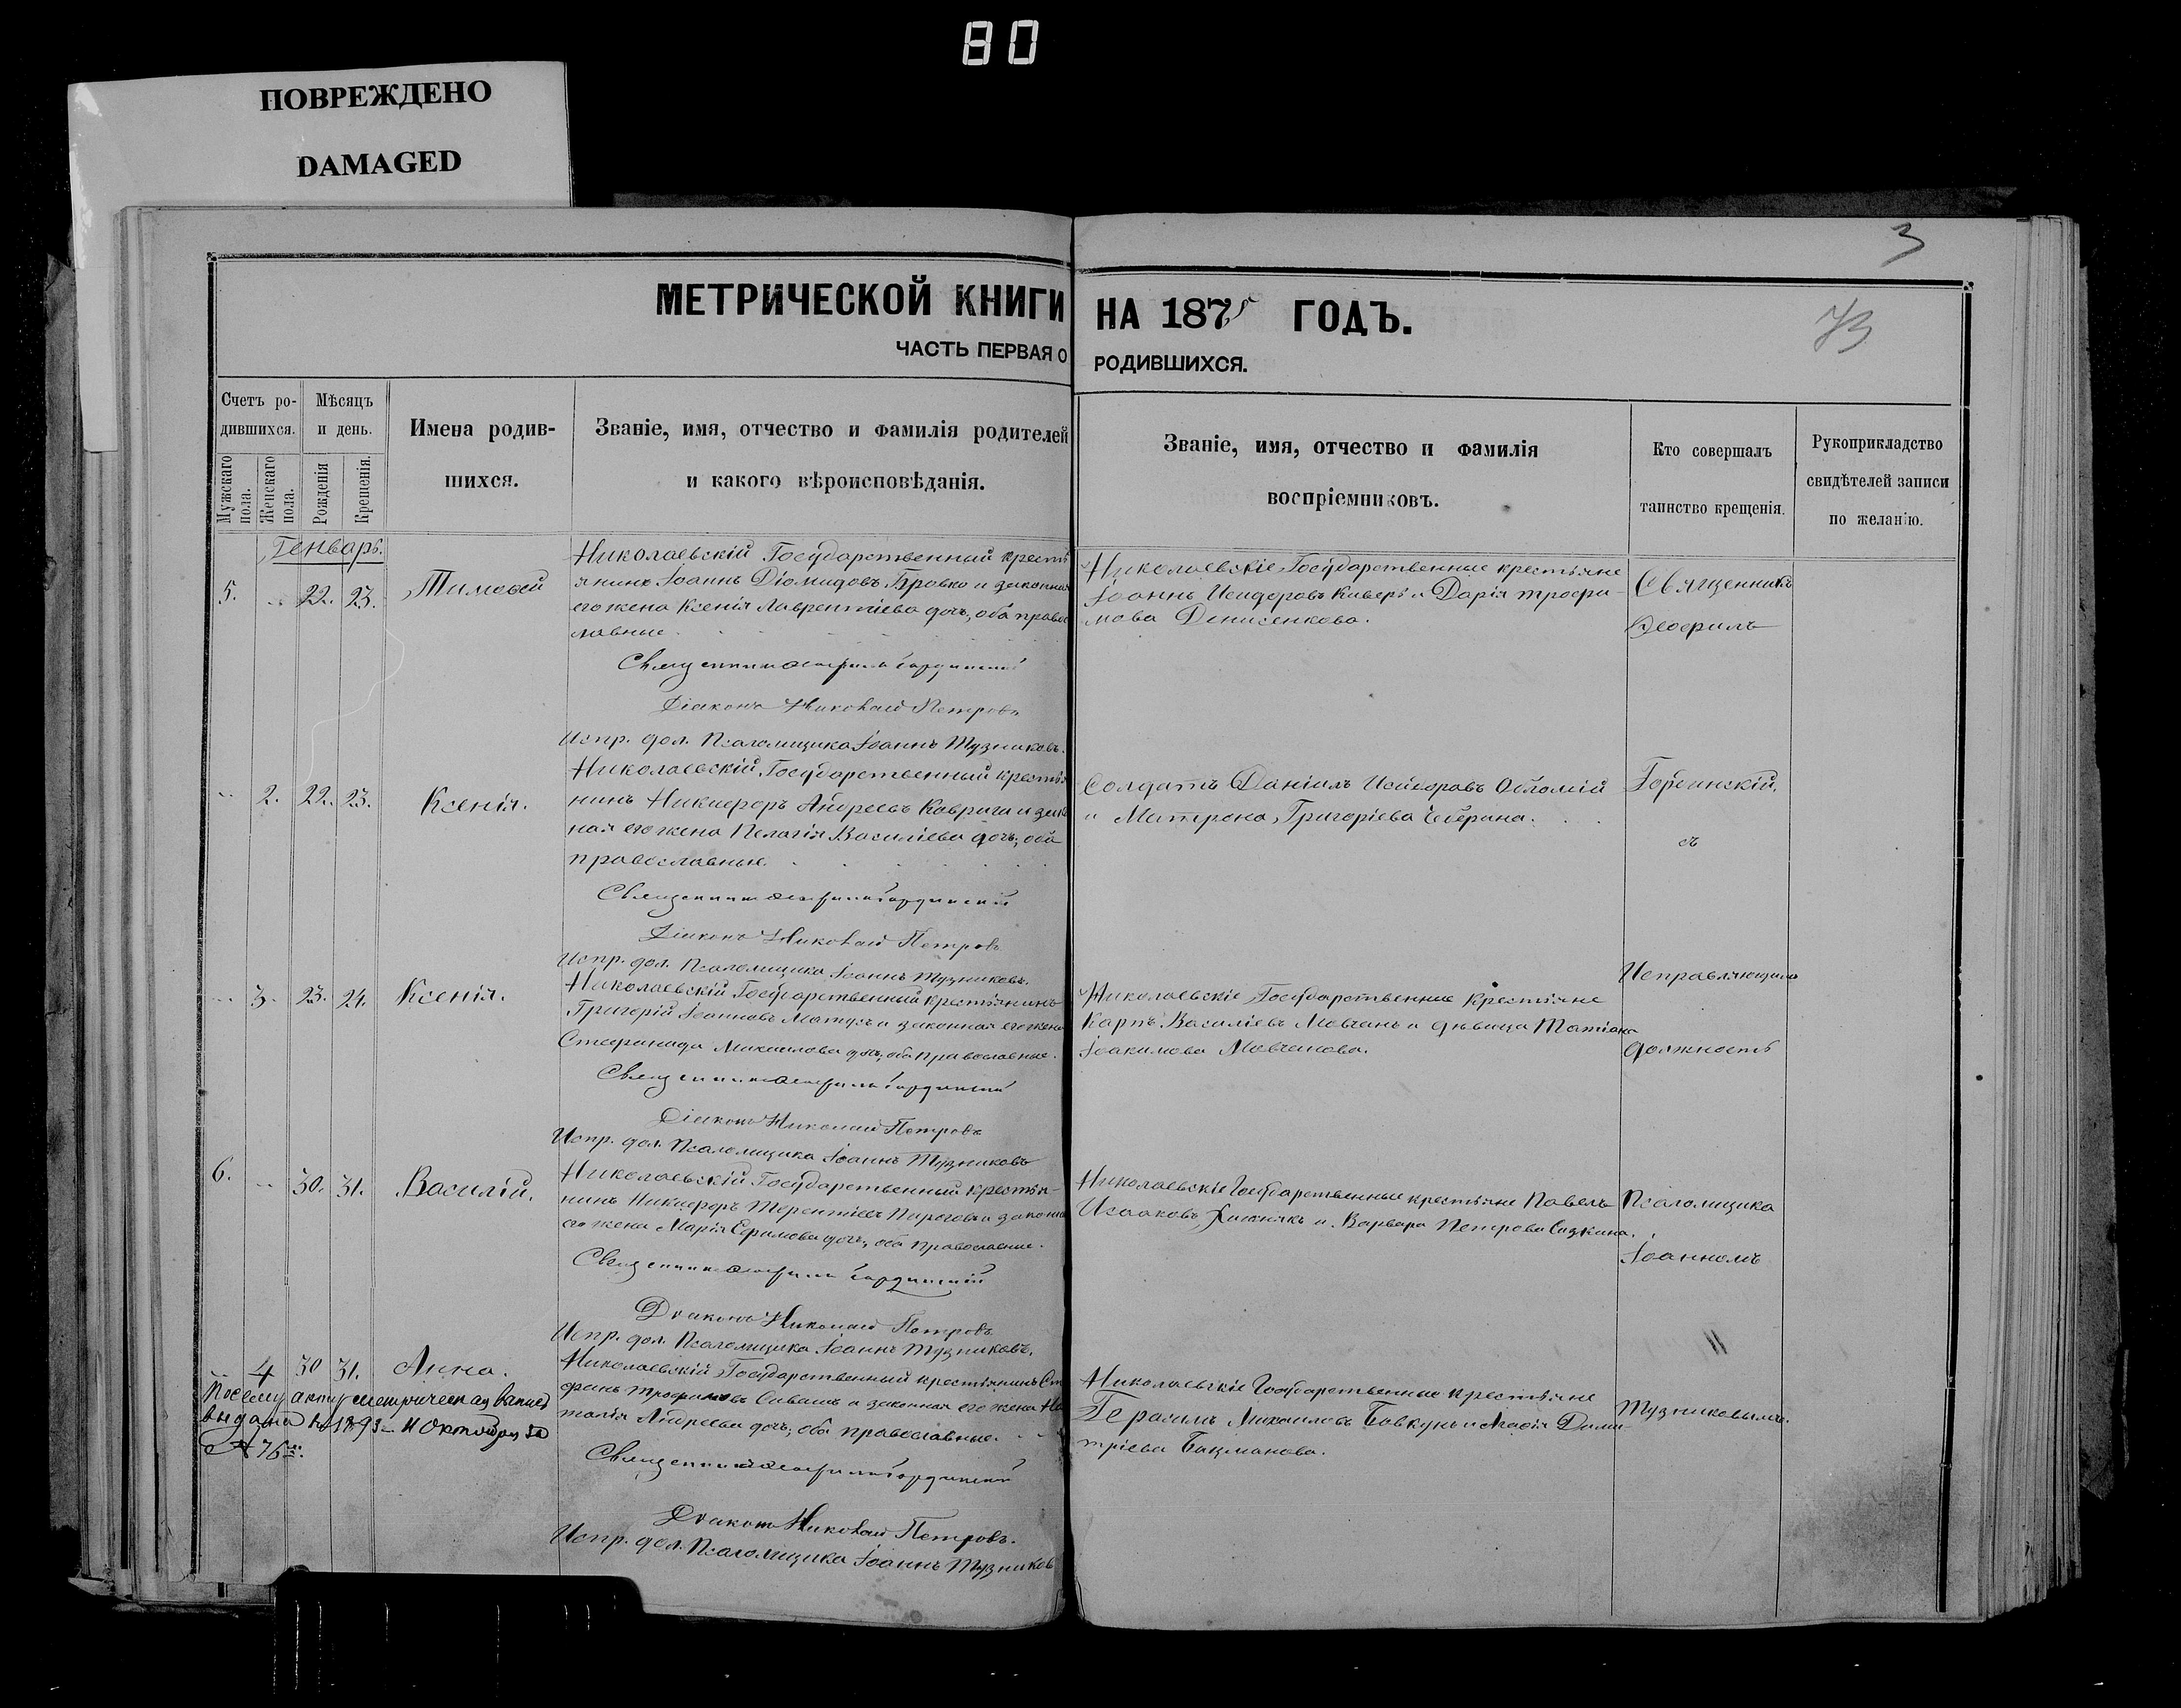 80
ПОВРЕЖДЕНО
DAMAGED
3
73
МЕТРИЧЕСКОЙ КНИГИ НА 1875 ГОДЪ.
ЧАСТЬ ПЕРВАЯ О РОДИВШИХСЯ.
Счетъ ро-
дившихся.
Мужскаго
пола.
Женскаго
пола.
Мѣсяцъ
и день.
Рожденія
Крещенія.
Имена родив-
шихся.
Званіе, имя, отчество и фамилія родителей
и какого вѣроисповѣданія.
Званіе, имя, отчество и фамилія
воспріемниковъ.
Кто совершалъ
таинство крещенія.
Рукоприкладство
свидѣтелей записи
по желанію.
Генварь.
5. 22. 23. Тимофей
Николаевскій Государственный кресть
янинъ Іоаннъ Діомидовъ и законная
его жена Ксенія Лаврентіева дочь, оба право
славные.
Священникъ Ѳеофилъ
Діаконъ Николай Петровъ
Испр. дол. Псаломщика Іоаннъ Тузниковъ.
Николаевскіе Государственные крестьяне
Іоаннъ Исидоровъ и Дарія Трофи-
мова Денисенкова.
Священникъ
Ѳеофилъ
2. 22. 23. Ксенія.
Николаевскій Государственный крестья
нинъ Никифоръ Андреевъ Коврига и закон
ная его жена Пелагія Василіева дочь, оба
православные.
Священникъ Ѳеофилъ
Діаконъ Николай Петровъ
Испр. дол. Псаломщика Іоаннъ Тузниковъ.
Солдатъ Даніилъ Исидоровъ
и Матрона Григоріева
съ
3. 23. 24. Ксенія.
Николаевскій Государственный крестьянинъ
Григорій Іоанновъ и законная его жена
Стефанида Михаилова дочь, оба православные.
Священникъ Ѳеофилъ
Діаконъ Николай Петровъ
Испр. дол. Псаломщика Іоаннъ Тузниковъ
Николаевскіе Государственные крестьяне
Карпъ Василіевъ Мовчанъ и дѣвица Татіана
Іоакимова Мовчанова.
Исправляющимъ
должность
6. 30. 31. Василій.
Николаевскій Государственный крестья-
нинъ Никифоръ Терентіевъ Пироговъ и законная
его жена Марія Ефимова дочь, оба православные.
Священникъ Ѳеофилъ
Діаконъ Николай Петровъ
Испр. дол. Псаломщика Іоаннъ Тузниковъ.
Николаевскіе Государственные крестьяне Павелъ
Исааковъ и Варвара Петрова
Псаломщика
Іоанномъ
4 30 31. Анна.
По сему акту метрическая выпись
выдана въ 1893 11 Октября за
№ 76
Николаевскій Государственный крестьянинъ Сте
фанъ Трофимовъ Сивашъ и законная его жена На
талія Андреева дочь, оба православные.
Священникъ Ѳеофилъ
Діаконъ Николай Петровъ.
Испр. дол. Псаломщика Іоаннъ Тузников
Николаевскіе Государственные крестьяне
Герасимъ Михаиловъ Бовкунъ и Дими-
тріева
Тузниковымъ.